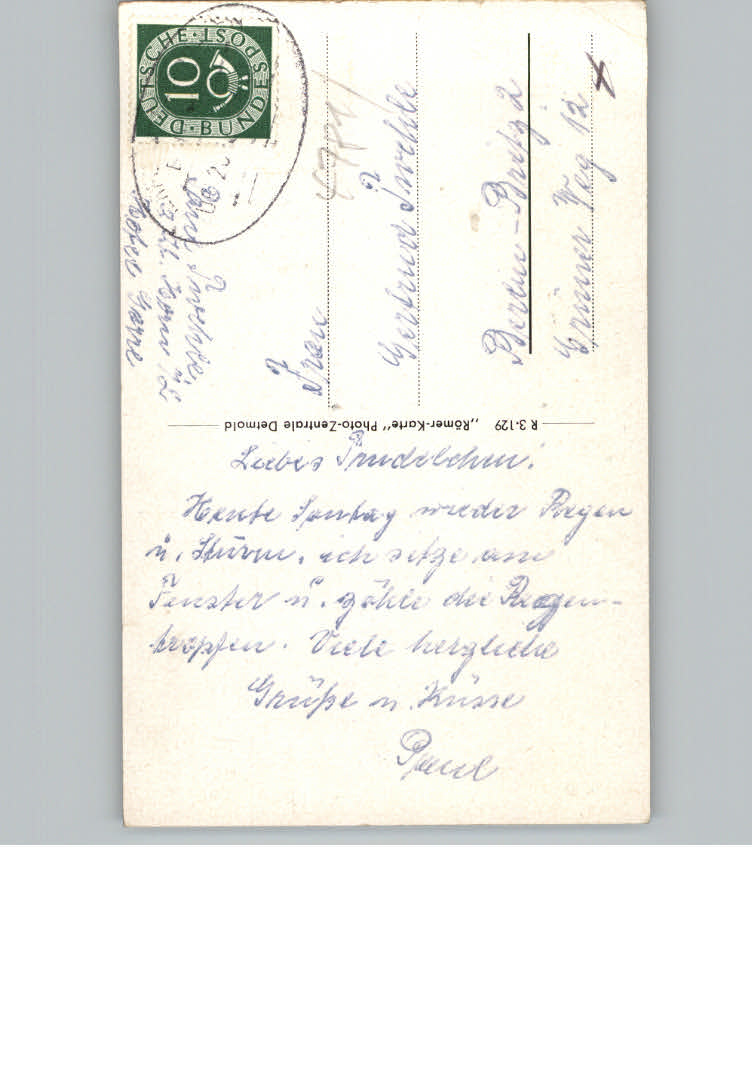 Liebes Trudelchen!
Heute Sontag wieder Regen
u. Sturm, ich sitze am
Fenster u. zähle die Regen-
tropfen. Viele herzliche
Grüße u. Küsse
Paul
R 3-129 „Römer-Karte" Photo-Zentrale Detmold
Frau
Gertrud
Berlin-Britz 2
Grüner Weg 12
Hotel
DEUTSCHE BUNDESPOST
10